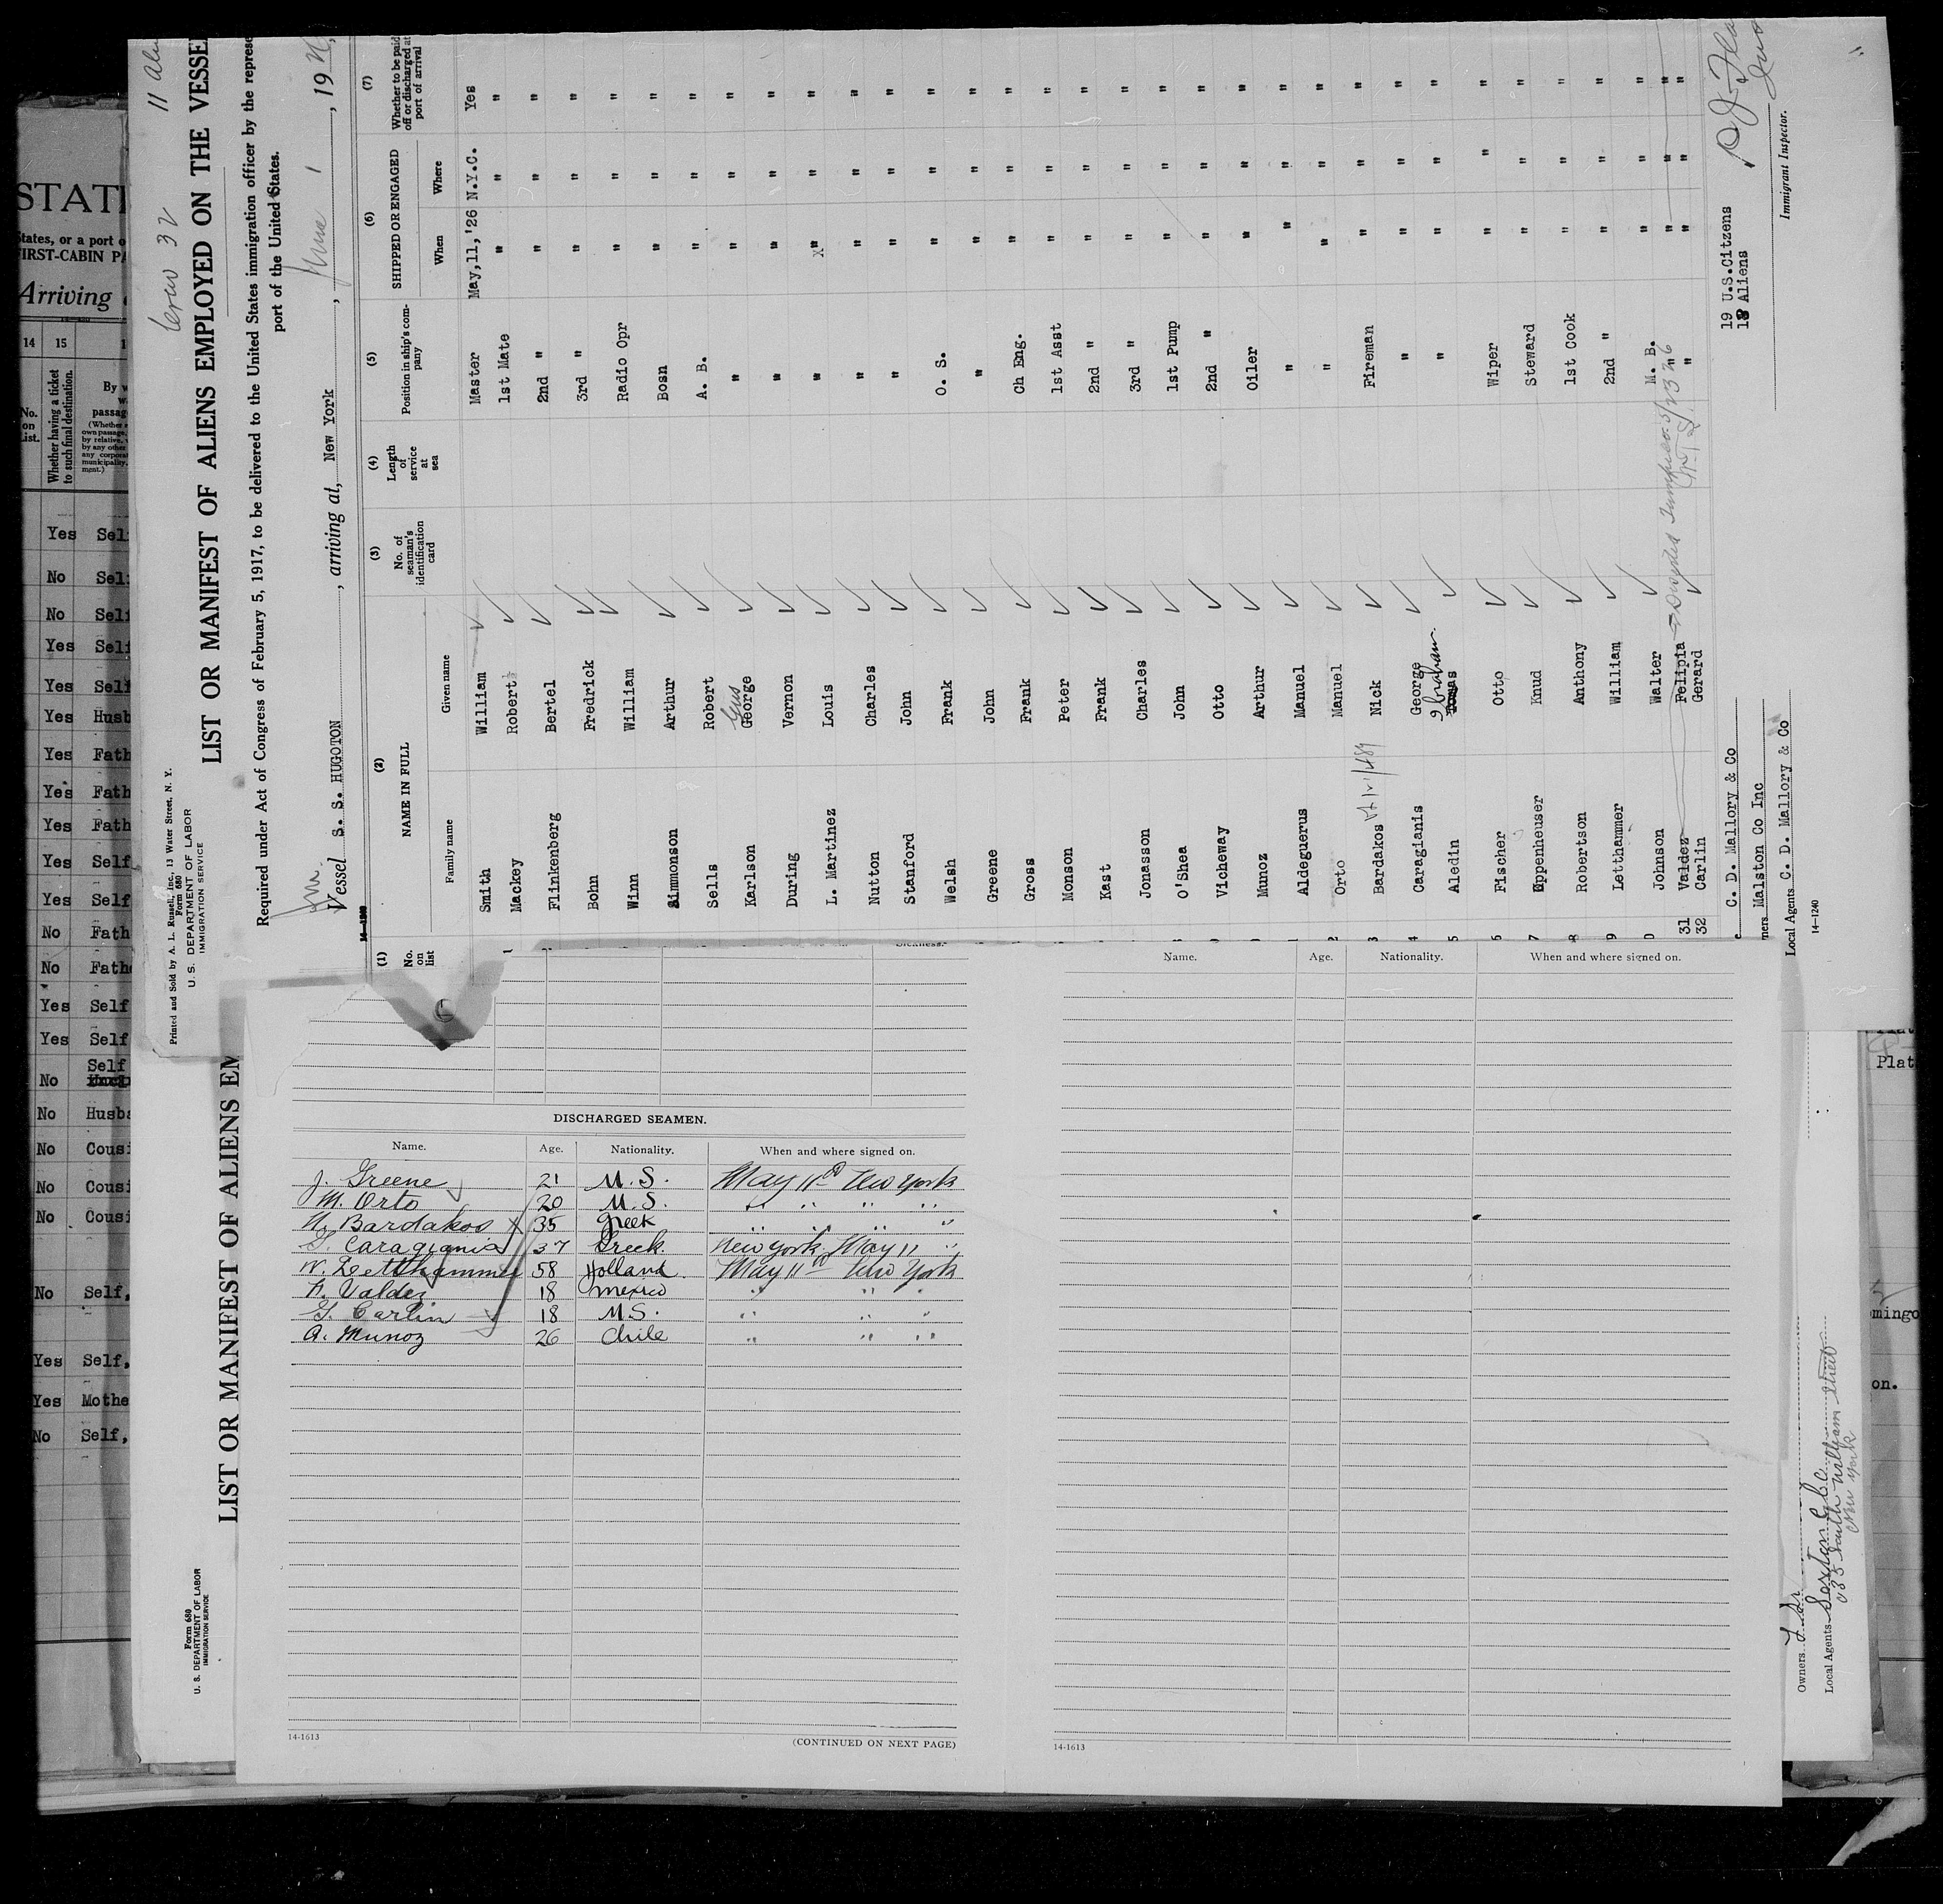 11
Crew 32
Printed and Sold by A. L. Russell, Inc., 13 Water Street, N. Y.
Form 680
U. S. DEPARTMENT OF LABOR
IMMIGRATION SERVICE
LIST OR MANIFEST OF ALIENS EMPLOYED ON THE VESSE
Required under Act of Congress of February 5, 1917, to be delivered to the United States immigration officer by the represe
port of the United States.
Vessel S. S. HUGOTON, arriving at, New York, June 1, 19
(1) (2) (3) (4) (5) (6) (7)
No. on list
NAME IN FULL
Family name Given name
No. of seaman's identification card
Length of service at sea
Position in ship's company
SHIPPED OR ENGAGED
When Where
Whether to be paid off or discharged at port of arrival
Smith William Master May,11,'26 N.Y.C. Yes
Mackey Robert 1st Mate " " "
Flinkenberg Bertel 2nd " " " "
Bohn Fredrick 3rd " " " "
Winn William Radio Opr " " "
Simmonson Arthur Bosn " " "
Sells Robert A. B. " " "
Karlson Gus George " " " "
During Vernon " " " "
L. Martinez Louis " x" " "
Nutton Charles " " " "
Stanford John " " " "
Welsh Frank O. S. " " "
Greene John " " " "
Gross Frank Ch Eng. " " "
Monson Peter 1st Asst " " "
Kast Frank 2nd " " " "
Jonasson Charles 3rd " " " "
O'Shea John 1st Pump " " "
Vicheway Otto 2nd " " " "
Munoz Arthur Oiler " " "
Aldeguerus Manuel " " " "
Orto Manuel " " " "
Bardakos Nick Fireman " " "
Caragianis George " " " "
Aledin Tomas Ibraham " " " "
Fischer Otto Wiper " " "
Eppenheuser Knud Steward " " "
Robertson Anthony 1st Cook " " "
Letthammer William 2nd " " " "
Johnson Walter M. B. " " "
31 Valdez Felipia " " " "
32 Carlin Gerard " " " "
19 U.S.Citzens
13 Aliens
C. D. Mallory & Co
ners Malston Co Inc
Local Agents C. D. Mallory & Co
Immigrant Inspector.
14—1240
DISCHARGED SEAMEN.
Name. Age. Nationality. When and where signed on.
J. Greene 21 U.S. May 11th New York
M. Orto 20 U.S. " " " "
N. Bardakos x 35 Greek " " " "
G. Caragianis 37 Greek New York May 11 "
W. Letthammer 58 Holland May 11th New York
F. Valdez 18 Mexico " " "
G. Carlin 18 U.S. " " "
A. Munoz 26 Chile " " " "
14-1613
(CONTINUED ON NEXT PAGE)
Name. Age. Nationality. When and where signed on.
14-1613
Form 680
U. S. DEPARTMENT OF LABOR
IMMIGRATION SERVICE
LIST OR MANIFEST OF ALIENS EM
Owners
Local Agents Sexton
South William Street
New York
STAT
States, or a port o
FIRST-CABIN PA
Arriving
14 15
No. on List.
Whether having a ticket to such final destination.
Yes Sel
No Sel
No Self
Yes Self
Yes Self
Yes Husb
Yes Fath
Yes Fath
Yes Fath
Yes Self
Yes Self
No Fath
No Fath
Yes Self
Yes Self
Self
No
No Husba
No Cousi
No Cousi
No Cousi
No Self,
Yes Self,
Yes Mothe
No Self,
Plat
mingo
on.